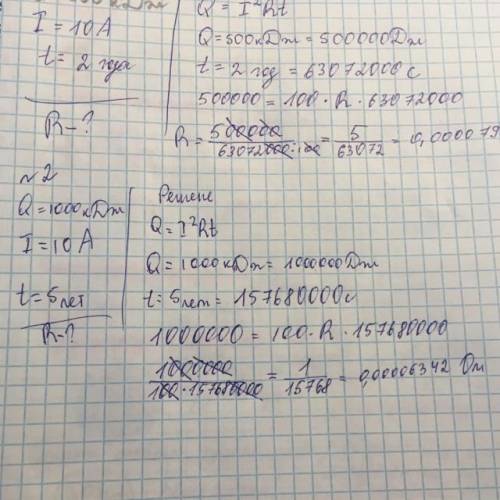 I = 10 А
t = 2 года
R - ?
Q = I²Rt
Q = 500 кДж = 500000 Дж
t = 2 год = 63072000 с
500000 = 100 · R · 63072000
R = 500000 / 63072000 · 100 = 5 / 63072 = 0,000079
№2
Q = 1000 кДж
I = 10 А
t = 5 лет
R - ?
Решене
Q = I²Rt
Q = 1000 кДж = 1000000 Дж
t = 5 лет = 157680000 с
1000000 = 100 · R · 157680000
1000000 / 100 · 157680000 = 1 / 15768 = 0,00006342 Ом